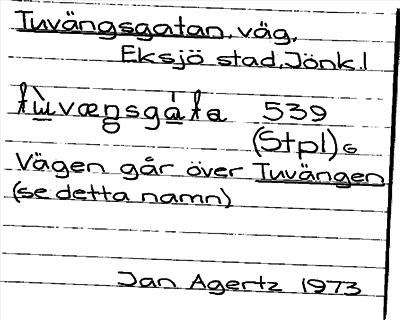 Tuvängsgatan, väg,
Eksjö stad, Jönk.l
tùvæŋsgáta 539
(Stpl)G
Vägen går över Tuvängen
(se detta namn)
Jan Agertz 1973